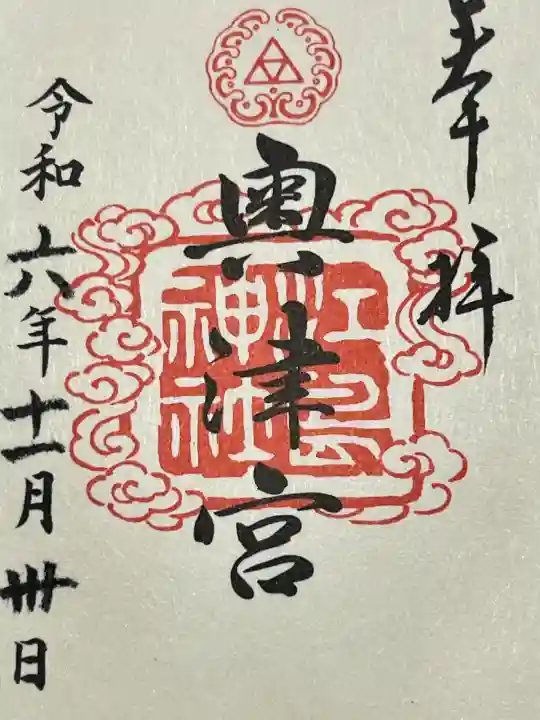 奉拝
奥津宮
江島
神社
令和六年十一月卅日